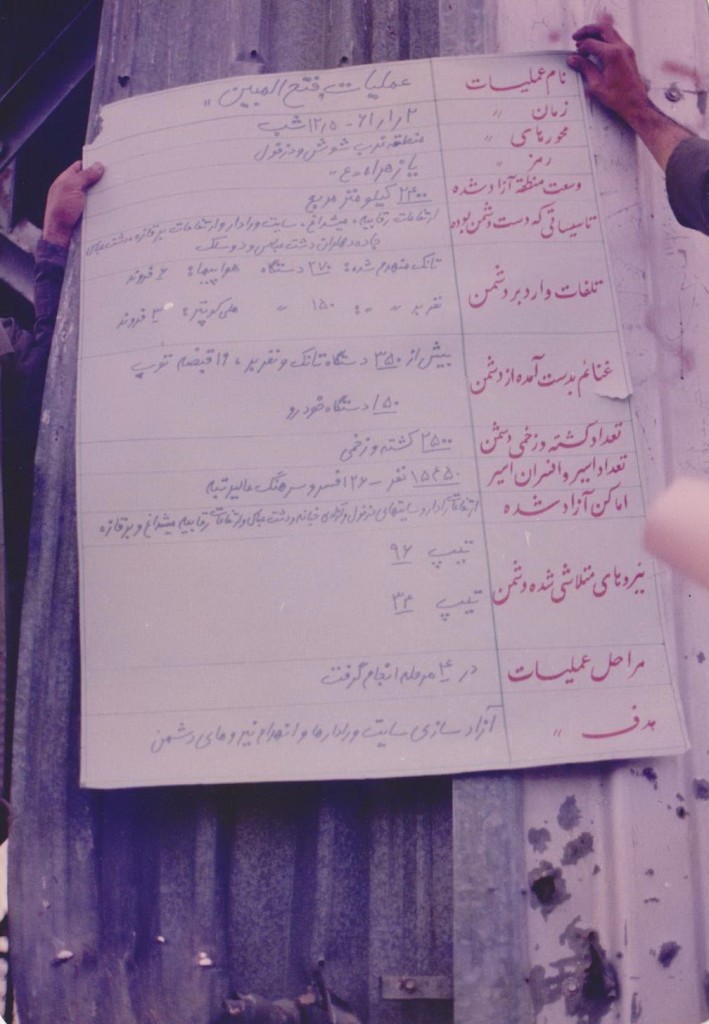 نام عملیات عملیات فتح المبین "
زمان " ۲ر۱ر۶۱ - ۱۲٫۵ شب
محورهای " منطقه غرب شوش و دزفول
رمز " یا زهراء «ع»
وسعت منطقه آزاد شده ۲۴۰۰ کیلومتر مربع
تاسیساتی که دست دشمن بوده ارتفاعات رقابیه، میشداغ، سایت و رادار و ارتفاعات برقازه، دشت عباس
جاده دهلران دشت عباس و دوسلک
تلفات وارد بر دشمن تانک منهدم شده: ۲۷۰ دستگاه هواپیما: ۶ فروند
نفربر " " : ۱۵۰ " هلی کوپتر: ۳ فروند
غنائم بدست آمده از دشمن بیش از ۳۵۰ دستگاه تانک و نفربر، ۱۹ قبضه توپ
۱۵۰ دستگاه خودرو
تعداد کشته و زخمی دشمن ۲۵۰۰ کشته و زخمی
تعداد اسیر و افسران اسیر نفر - ۱۲۶ افسر و سرهنگ عالیرتبه
اماکن آزاد شده ارتفاعات رادار و سایتهای دزفول و دشت عباس و ارتفاعات رقابیه میشداغ و برقازه
نیروهای متلاشی شده دشمن تیپ ۹۶
تیپ ۳۴
مراحل عملیات در ۴ مرحله انجام گرفت
هدف " آزاد سازی سایت و رادارها و انهدام نیروهای دشمن